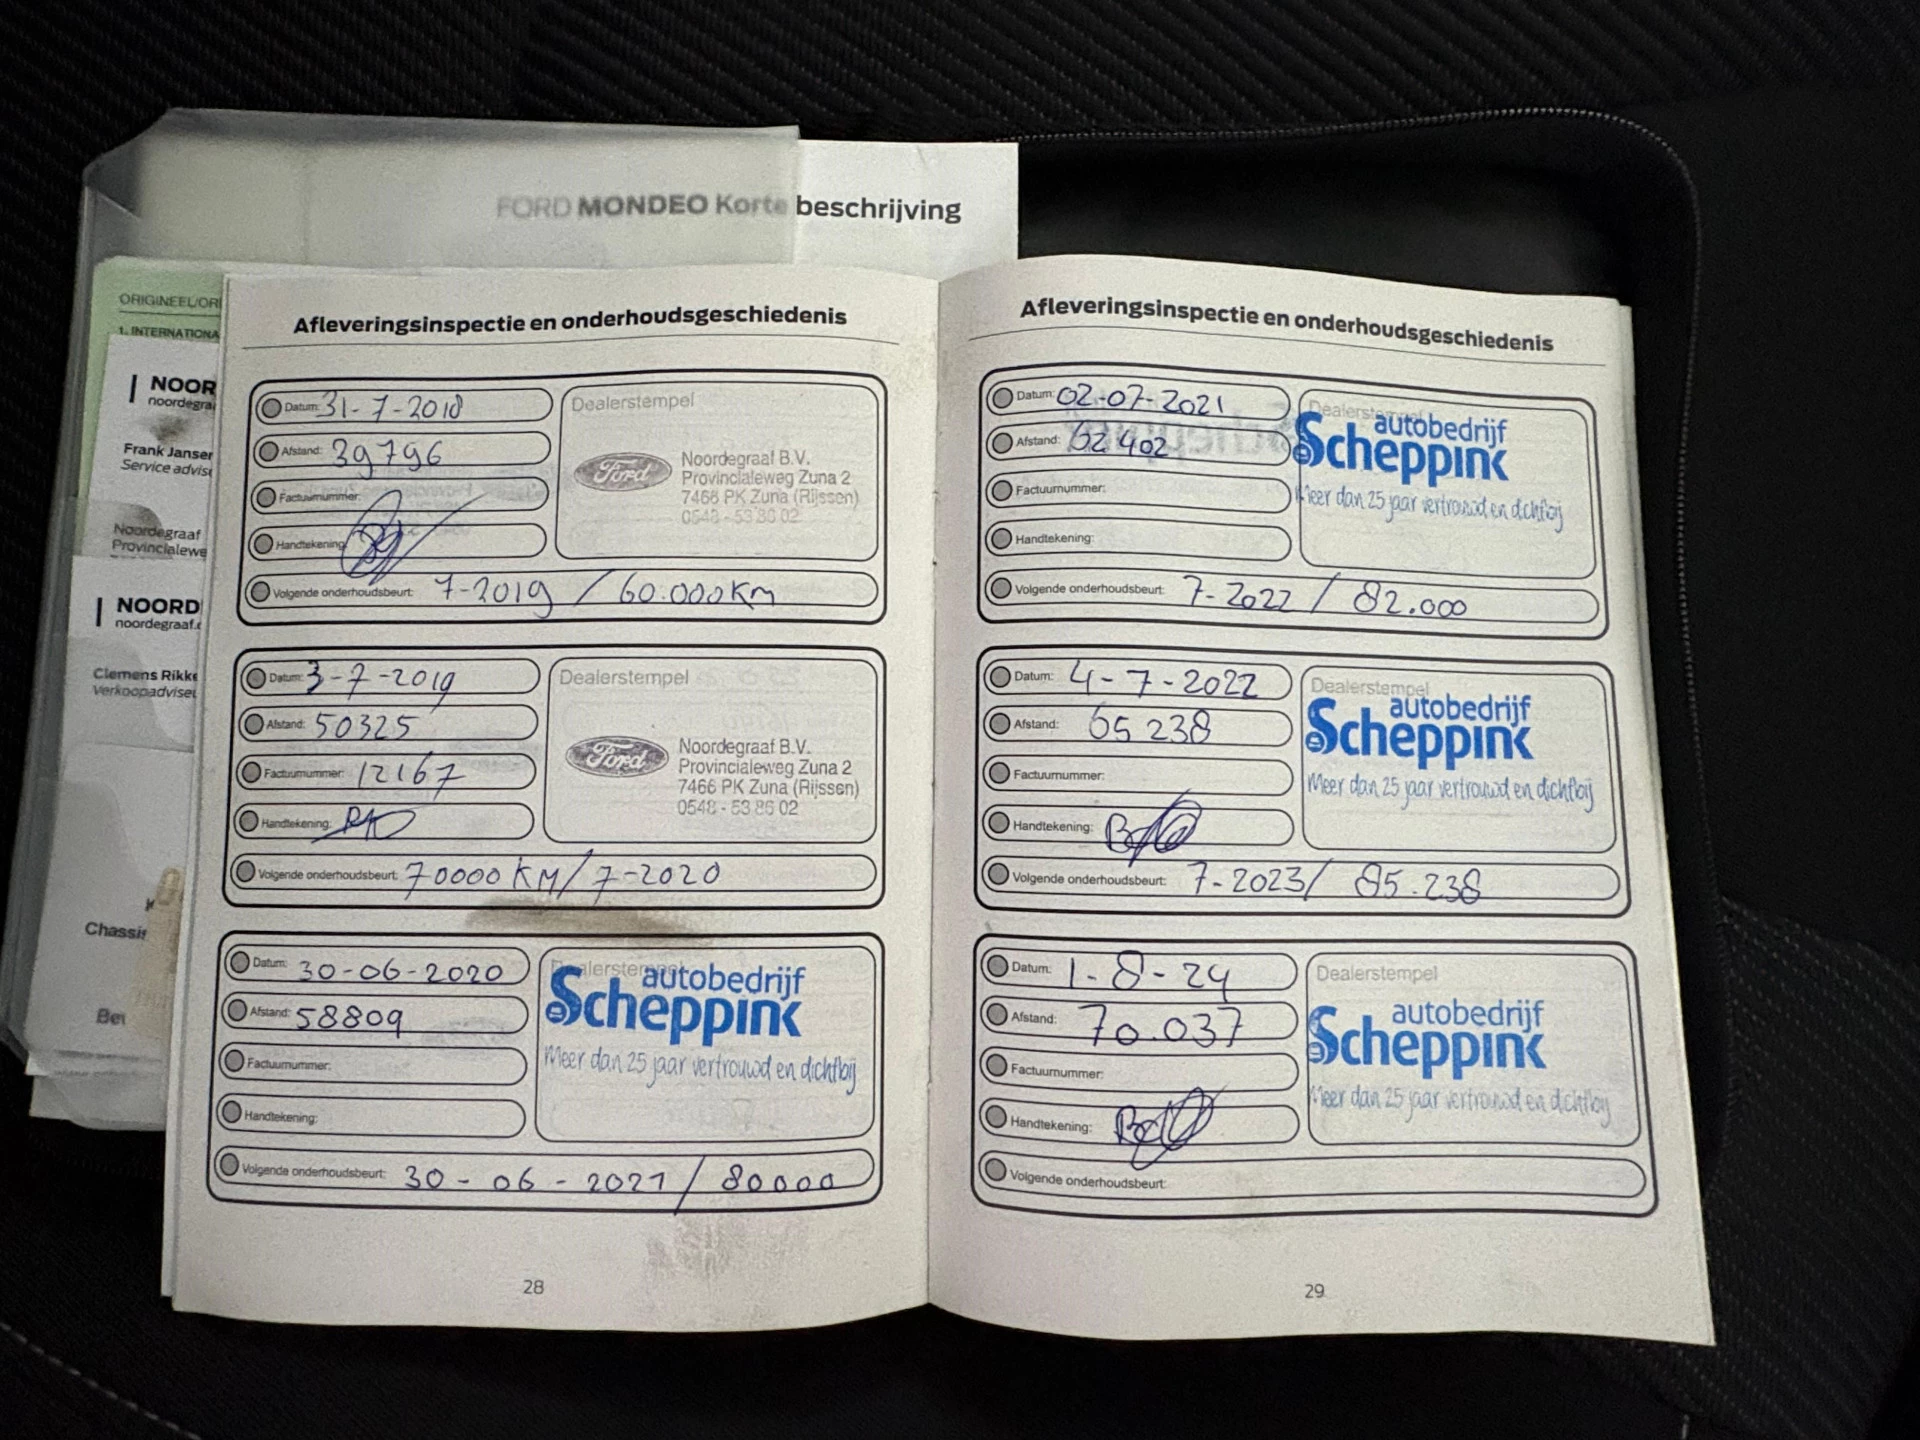 FORD MONDEO Korte beschrijving
ORIGINEEL/ORI
1. INTERNATIONA
NOOR
noordegra
Frank Janser
Service advis
Noordegraaf
Provincialewe
NOORD
noordegraaf.
Clemens Rikke
Verkoopadviseu
Chassis
Afleveringsinspectie en onderhoudsgeschiedenis
Datum: 31-7-2018
Afstand: 39796
Factuurnummer:
Handtekening:
Volgende onderhoudsbeurt: 7-2019 / 60.000KM
Dealerstempel
Ford
Noordegraaf B.V.
Provincialeweg Zuna 2
7466 PK Zuna (Rijssen)
0548 - 53 86 02
Datum: 3-7-2019
Afstand: 50325
Factuurnummer: 12167
Handtekening:
Volgende onderhoudsbeurt: 70000 KM / 7-2020
Dealerstempel
Ford
Noordegraaf B.V.
Provincialeweg Zuna 2
7466 PK Zuna (Rijssen)
0548 - 53 86 02
Datum: 30-06-2020
Afstand: 58809
Factuurnummer:
Handtekening:
Volgende onderhoudsbeurt: 30-06-2021 / 80000
Dealerstempel
autobedrijf
Scheppink
Meer dan 25 jaar vertrouwd en dichtbij
28
Afleveringsinspectie en onderhoudsgeschiedenis
Datum: 02-07-2021
Afstand: 62402
Factuurnummer:
Handtekening:
Volgende onderhoudsbeurt: 7-2022 / 82.000
Dealerstempel
autobedrijf
Scheppink
Meer dan 25 jaar vertrouwd en dichtbij
Datum: 4-7-2022
Afstand: 65238
Factuurnummer:
Handtekening:
Volgende onderhoudsbeurt: 7-2023/ 85.238
Dealerstempel
autobedrijf
Scheppink
Meer dan 25 jaar vertrouwd en dichtbij
Datum: 1-8-24
Afstand: 70.037
Factuurnummer:
Handtekening:
Volgende onderhoudsbeurt:
Dealerstempel
autobedrijf
Scheppink
Meer dan 25 jaar vertrouwd en dichtbij
29